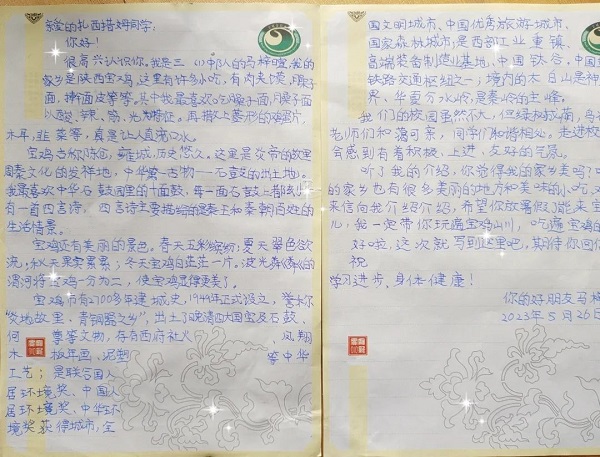 亲爱的扎西措姆同学:
你好!
很高兴认识你。我是三(1)中队的马梓暄,我的
家乡是陕西宝鸡,这里有许多小吃,有肉夹馍、臊子
面,擀面皮等等。其中我最喜欢吃臊子面,臊子面
以酸、辣、汪,光为特征。再撒上菱形的鸡蛋片,
木耳,韭菜等,真是让人直流口水。
宝鸡古称陈仓,雍城,历史悠久。这里是炎帝的故里
周秦文化的发祥地,中华第一古物——石鼓的出土地。
我最喜欢中华石鼓园里的十面鼓,每一面石鼓上都会
有一首四言诗。四言诗主要描绘的是秦王和秦朝百姓的
生活情景。
宝鸡还有美丽的景色。春天五彩缤纷;夏天翠色欲
流,秋天果实累累;冬天宝鸡白茫茫一片。波光粼粼的
渭河将宝鸡一分为二,使宝鸡显得更美了。
宝鸡市有2700多年建城史,1949年正式设立,誉称
“炎地故里、青铜器之乡”,出土了晚清四大国宝及石鼓、
何尊等文物,存有西府社火、凤翔
木板年画,泥塑等中华
工艺;是联合国人
居环境奖、中国人
居环境奖、中华环
境奖获得城市,全
国文明城市、中国优秀旅游城市、
国家森林城市;是西部工业重镇、
高端装备制造业基地、中国钛谷,中国
铁路交通枢纽之一;境内的太白山是神
界、华夏分水岭,是秦岭的主峰。
我们的校园虽然不大,但绿树成荫,鸟
老师们和蔼可亲,同学们和谐相处。走进校
会感到有着积极、上进、友好的气息。
听了我的介绍,你觉得我的家乡美吗?
的家乡也有很多美丽的地方和美味的小吃,
来信向我介绍介绍,希望你放暑假了能来宝
儿,我一定带你玩遍宝鸡山川,吃遍宝鸡的
好啦,这次就写到这里吧,期待你回信
祝
学习进步、身体健康!
你的好朋友马梓
2023年5月26日